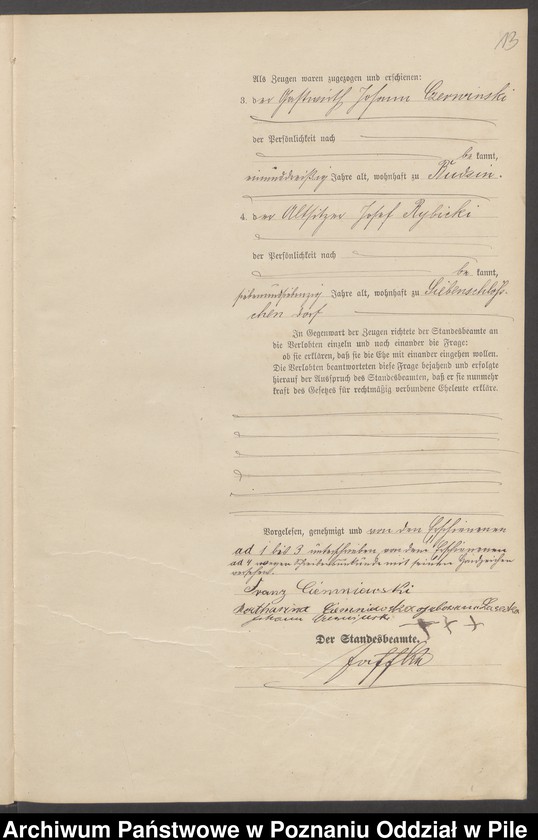 13
Als Zeugen waren zugezogen und erschienen:
3. der Gastwirth Johann Czerwinski
der Persönlichkeit nach
be kannt,
einunddreißig Jahre alt, wohnhaft zu Rudzin.
4. der Altsitzer Josef Rybicki
der Persönlichkeit nach
be kannt,
siebenundsiebenzig Jahre alt, wohnhaft zu Siebenschlöß-
chen Dorf
In Gegenwart der Zeugen richtete der Standesbeamte an
die Verlobten einzeln und nach einander die Frage:
ob sie erklären, daß sie die Ehe mit einander eingehen wollen.
Die Verlobten beantworteten diese Frage bejahend und erfolgte
hierauf der Ausspruch des Standesbeamten, daß er sie nunmehr
kraft des Gesetzes für rechtmäßig verbundene Eheleute erkläre.
Vorgelesen, genehmigt und von den Erschienenen
ad 1 bis 3 unterschrieben, von dem Erschienenen
ad 4 wegen Schreibensunkunde mit seinem Handzeichen
versehen.
Franz Ciemniewski
Katharina Ciemniewska geborene
Johann Czerwinski +++
Der Standesbeamte.
Archiwum Państwowe w Poznaniu Oddział w Pile